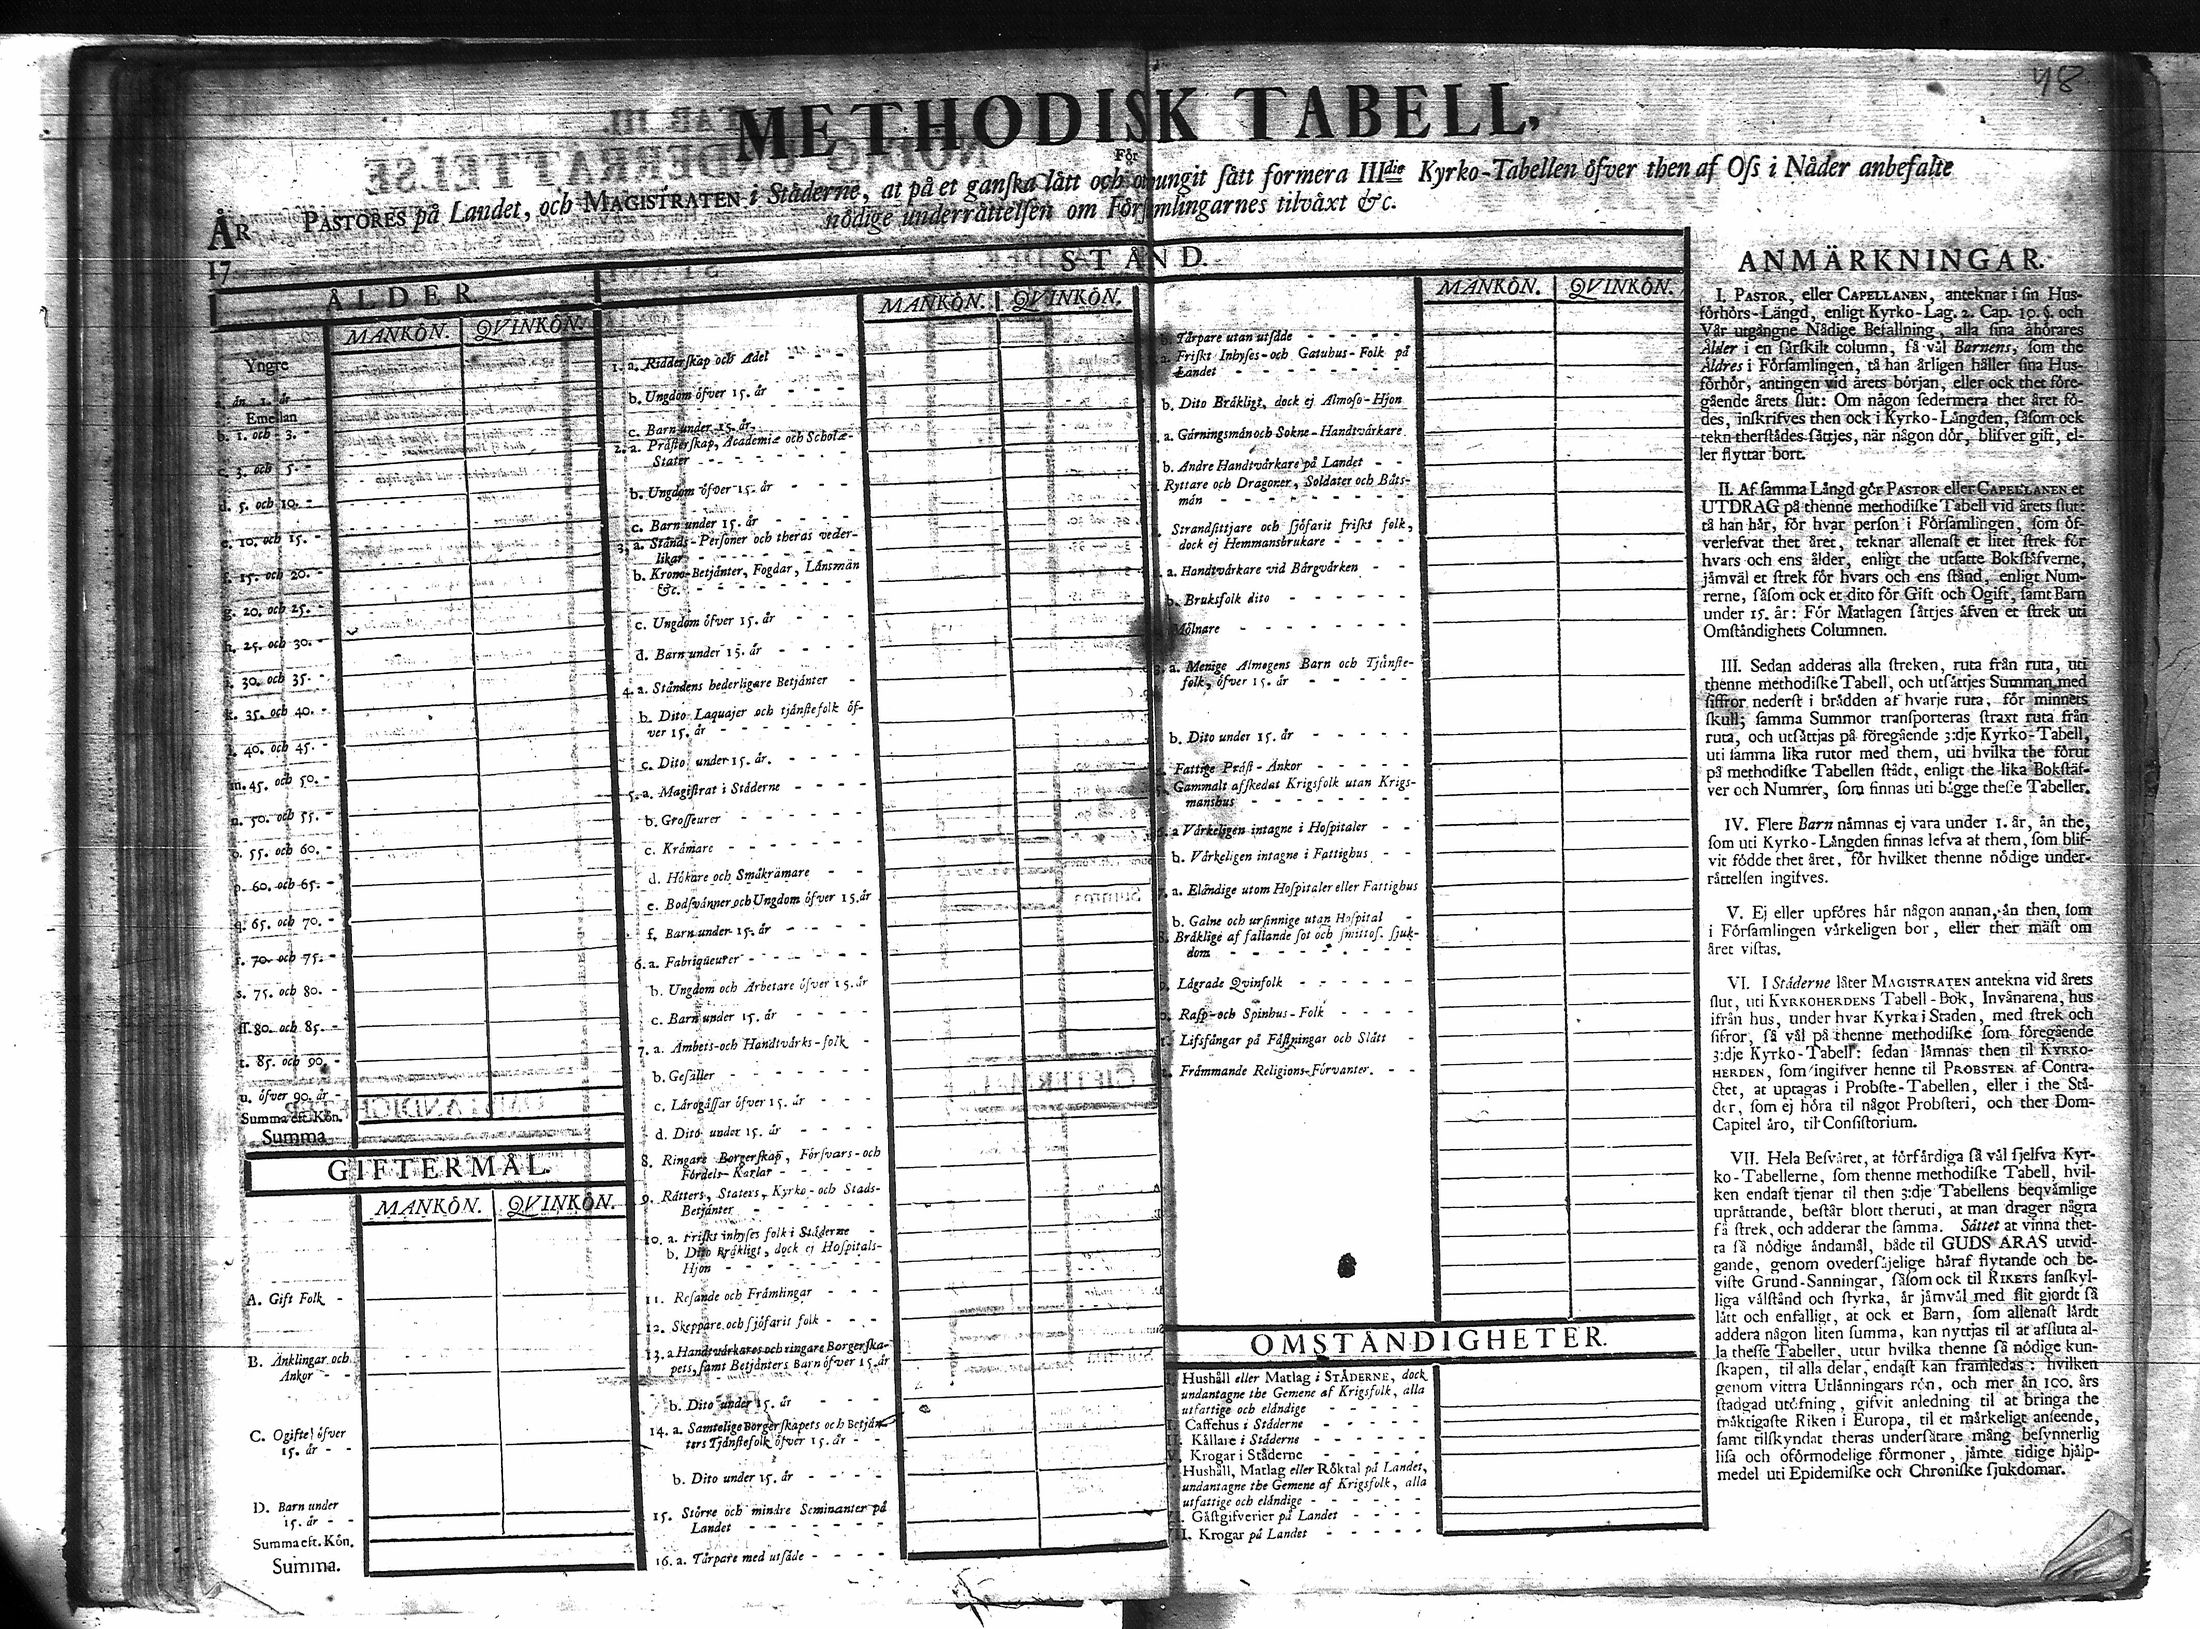 48
METHODISK TABELL,
För
PASTORES på Landet, och MAGISTRATEN i Städerne, at på et ganſka lätt och otvungit ſätt formera IIIdie Kyrko-Tabellen öfver then af Oſs i Nåder anbefalte
nödige underrättelſen om Förſamlingarnes tilväxt &c.
ÅR
17
ÅLDER.
MANKÖN. QVINKÖN.
Yngre
än 1. år
Emellan
b. 1. och 3. -
c. 3. och 5. -
d. 5. och 10. -
e. 10. och 15. -
f. 15. och 20. -
g. 20. och 25. -
h. 25. och 30. -
i. 30. och 35. -
k. 35. och 40. -
l. 40. och 45. -
m. 45. och 50. -
n. 50. och 55. -
o. 55. och 60. -
p. 60. och 65. -
q. 65. och 70. -
r. 70. och 75. -
s. 75. och 80. -
ſſ. 80. och 85. -
t. 85. och 90. -
u. öfver 90. år -
Summa eft. Kön.
Summa
GIFTERMÅL.
MANKÖN. QVINKÖN.
A. Gift Folk -
B. Änklingar och
Änkor - -
C. Ogifte öfver
15. år - -
D. Barn under
15. år - -
Summa eft. Kön.
Summa.
STÅND.
MANKÖN. QVINKÖN.
1. a. Ridderſkap och Adel - - -
b. Ungdom öfver 15. år - - -
c. Barn under 15. år -
2. a. Präſterſkap, Academiæ och Scholæ-
Stater - - - - - -
b. Ungdom öfver 15. år - - -
c. Barn under 15. år - - - -
3. a. Stånds-Perſoner och theras veder-
likar - - - - - -
b. Krono-Betjänter, Fogdar, Länsmän
&c. - - - - - -
c. Ungdom öfver 15. år - - -
d. Barn under 15. år - - - -
4. a. Ståndens hederligare Betjänter -
b. Dito Laquajer och tjänſtefolk öf-
ver 15. år - - - - -
c. Dito under 15. år. - - - -
5. a. Magiſtrat i Städerne - - - -
b. Groſſeurer - - - - - -
c. Krämare - - - - - -
d. Hökare och Småkrämare - -
e. Bodſvänner och Ungdom öfver 15. år
f. Barn under 15. år - - - -
6. a. Fabriqueurer - - - - - -
b. Ungdom och Arbetare öfver 15. år
c. Barn under 15. år - - - -
7. a. Ämbets-och Handtvärks-folk -
b. Geſäller - - - - - -
c. Lärogåſſar öfver 15. år - - -
d. Dito under 15. år - - - -
8. Ringare Borgerſkap, Förſvars-och
Fördels-Karlar - - - - -
9. Rätters, Staters, Kyrko-och Stads-
Betjänter - - - - - -
10. a. Friſkt inhyſes folk i Städerne -
b. Dito Bräkligt, dock ej Hoſpitals-
Hjon - - - - - - -
11. Reſande och Främlingar - - -
12. Skeppare och ſjöfarit folk - - -
13. a Handtvärkares och ringare Borgerſka-
pets, ſamt Betjänters Barn öfver 15. år
b. Dito under 15. år - - - -
14. a. Samtelige Borgerſkapets och Betjän-
ters Tjänſtefolk öfver 15. år - -
b. Dito under 15. år - - - -
15. Större och mindre Seminanter på
Landet - - - - - -
16. a. Tårpare med utſäde - - - -
MANKÖN. QVINKÖN.
b. Tårpare utan utſäde - - - - -
a. Friſkt Inhyſes-och Gatuhus-Folk på
Landet - - - - - - - -
b. Dito Bräkligt, dock ej Almoſo-Hjon
a. Gärningsmän och Sokne-Handtvärkare
b. Andre Handtvärkare på Landet - -
Ryttare och Dragoner, Soldater och Båts-
män - - - - - - - -
Strandſittjare och ſjöfarit friſkt folk,
dock ej Hemmansbrukare - - - -
a. Handtvärkare vid Bärgvärken - -
b. Bruksfolk dito - - - - - -
Mölnare - - - - - - - -
a. Menige Almogens Barn och Tjänſte-
folk, öfver 15. år - - - - -
b. Dito under 15. år - - - - -
Fattige Präſt-Änkor - - - - -
Gammalt afſkedat Krigsfolk utan Krigs-
manshus - - - - - - -
a Värkeligen intagne i Hoſpitaler - -
b. Värkeligen intagne i Fattighus - -
7. a. Eländige utom Hoſpitaler eller Fattighus
b. Galne och urſinnige utan Hoſpital -
8. Bräklige af fallande ſot och ſmittoſ. ſjuk-
dom - - - - - - - -
Lägrade Qvinfolk - - - - - -
Raſp-och Spinhus-Folk - - - -
Lifsfångar på Fäſtningar och Slått -
Främmande Religions-Förvanter. - - -
OMSTÄNDIGHETER.
Hushåll eller Matlag i STÄDERNE, dock
undantagne the Gemene af Krigsfolk, alla
utfattige och eländige - - - - -
Caffehus i Städerne - - - - -
Källare i Städerne - - - - -
Krogar i Städerne - - - - -
Hushåll, Matlag eller Röktal på Landet,
undantagne the Gemene af Krigsfolk, alla
utfattige och eländige - - - - - -
Gäſtgifverier på Landet - - - -
Krogar på Landet - - - - -
ANMÄRKNINGAR.
I. PASTOR, eller CAPELLANEN, anteknar i ſin Hus-
förhörs-Längd, enligt Kyrko-Lag. 2. Cap. 10. §. och
Vår utgångne Nådige Befallning, alla ſina åhörares
Ålder i en ſärſkilt column, ſå väl Barnens, ſom the
Äldres i Förſamlingen, tå han årligen håller ſina Hus-
förhör, antingen vid årets början, eller ock thet före-
gående årets ſlut: Om någon ſedermera thet året fö-
des, inſkrifves then ock i Kyrko-Längden, ſåſom ock
tekn therſtädes ſättjes, när någon dör, blifver gift, el-
ler flyttar bort.
II. Af ſamma Längd gör PASTOR eller CAPELLANEN et
UTDRAG på thenne methodiſke Tabell vid årets ſlut:
tå han här, för hvar perſon i Förſamlingen, ſom öf-
verlefvat thet året, teknar allenaſt et litet ſtrek för
hvars och ens ålder, enligt the utſatte Bokſtäfverne,
jämväl et ſtrek för hvars och ens ſtånd, enligt Num-
rerne, ſåſom ock et dito för Gift och Ogift, ſamt Barn
under 15. år: För Matlagen ſättjes äfven et ſtrek uti
Omſtändighets Columnen.
III. Sedan adderas alla ſtreken, ruta från ruta, uti
thenne methodiſke Tabell, och utſättjes Summan med
ſiffror nederſt i brädden af hvarje ruta, för minnets
ſkull; ſamma Summor tranſporteras ſtraxt ruta från
ruta, och utſättjas på föregående 3:dje Kyrko-Tabell,
uti ſamma lika rutor med them, uti hvilka the förut
på methodiſke Tabellen ſtådt, enligt the lika Bokſtäf-
ver och Numrer, ſom finnas uti bägge theſſe Tabeller.
IV. Flere Barn nämnas ej vara under 1. år, än the,
ſom uti Kyrko-Längden finnas lefva at them, ſom blif-
vit födde thet året, för hvilket thenne nödige under-
rättelſen ingifves.
V. Ej eller upföres här någon annan, än then, ſom
i Förſamlingen värkeligen bor, eller ther mäſt om
året viſtas.
VI. I Städerne låter MAGISTRATEN antekna vid årets
ſlut, uti KYRKOHERDENS Tabell-Bok, Invånarena, hus
ifrån hus, under hvar Kyrka i Staden, med ſtrek och
ſifror, ſå väl på thenne methodiſke ſom föregående
3:dje Kyrko-Tabell: ſedan lämnas then til KYRKO-
HERDEN, ſom ingifver henne til PROBSTEN af Contra-
ctet, at uptagas i Probſte-Tabellen, eller i the Stä-
der, ſom ej höra til något Probſteri, och ther Dom-
Capitel äro, til Conſiſtorium.
VII. Hela Beſväret, at förfärdiga ſå väl ſjelfva Kyr-
ko-Tabellerne, ſom thenne methodiſke Tabell, hvil-
ken endaſt tjenar til then 3:dje Tabellens beqvämlige
uprättande, beſtår blott theruti, at man drager några
få ſtrek, och adderar the ſamma. Sättet at vinna thet-
ta ſå nödige ändamål, både til GUDS ÄRAS utvid-
gande, genom ovederſäjelige häraf flytande och be-
viſte Grund-Sanningar, ſåſom ock til RIKETS ſanſkyl-
liga välſtånd och ſtyrka, är jämväl med flit gjordt ſå
lätt och enfalligt, at ock et Barn, ſom allenaſt lärdt
addera någon liten ſumma, kan nyttjas til at afſluta al-
la theſſe Tabeller, utur hvilka thenne ſå nödige kun-
ſkapen, til alla delar, endaſt kan framledas: hvilken
genom vittra Utlänningars rön, och mer än 100. års
ſtadgad utöfning, gifvit anledning til at bringa the
mäktigaſte Riken i Europa, til et märkeligt anſeende,
ſamt tilſkyndat theras underſåtare mång beſynnerlig
liſa och oförmodelige förmoner, jämte tidige hjälp-
medel uti Epidemiſke och Chroniſke ſjukdomar.